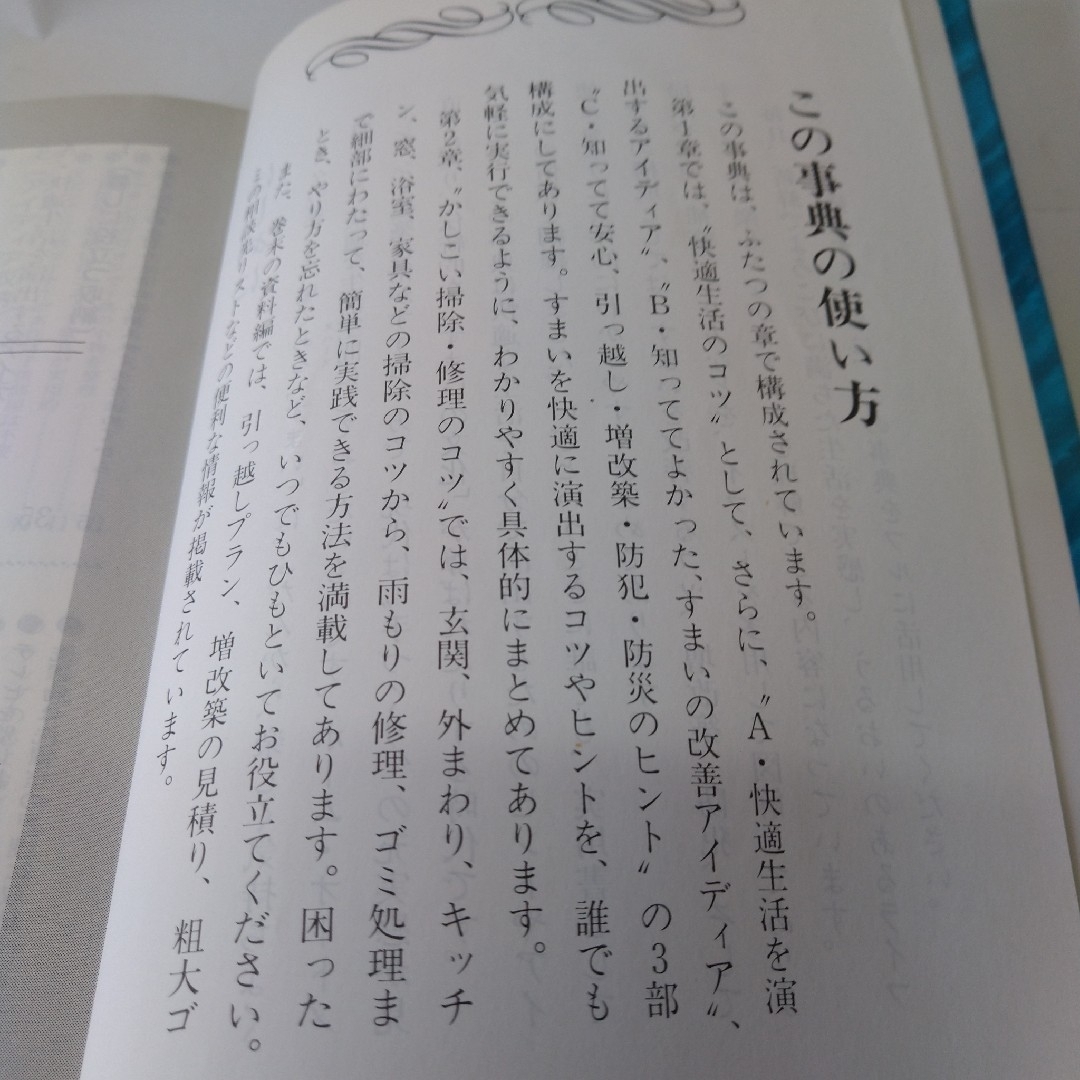 この事典の使い方
この事典は、ふたつの章で構成されています。
第1章では、〝快適生活のコツ〟として、さらに、〝A・快適生活を演
出するアイディア〟、〝B・知っててよかった、すまいの改善アイディア〟、
〝C・知ってて安心、引っ越し・増改築・防犯・防災のヒント〟の3部
構成にしてあります。すまいを快適に演出するコツやヒントを、誰でも
気軽に実行できるように、わかりやすく具体的にまとめてあります。
第2章、〝かしこい掃除・修理のコツ〟では、玄関、外まわり、キッチ
ン、窓、浴室、家具などの掃除のコツから、雨もりの修理、ゴミ処理ま
で細部にわたって、簡単に実践できる方法を満載してあります。困った
とき、やり方を忘れたときなど、いつでもひもといてお役立てください。
また、巻末の資料編では、引っ越しプラン、増改築の見積り、粗大ゴ
ミの相談先リストなどの便利な情報が掲載されています。